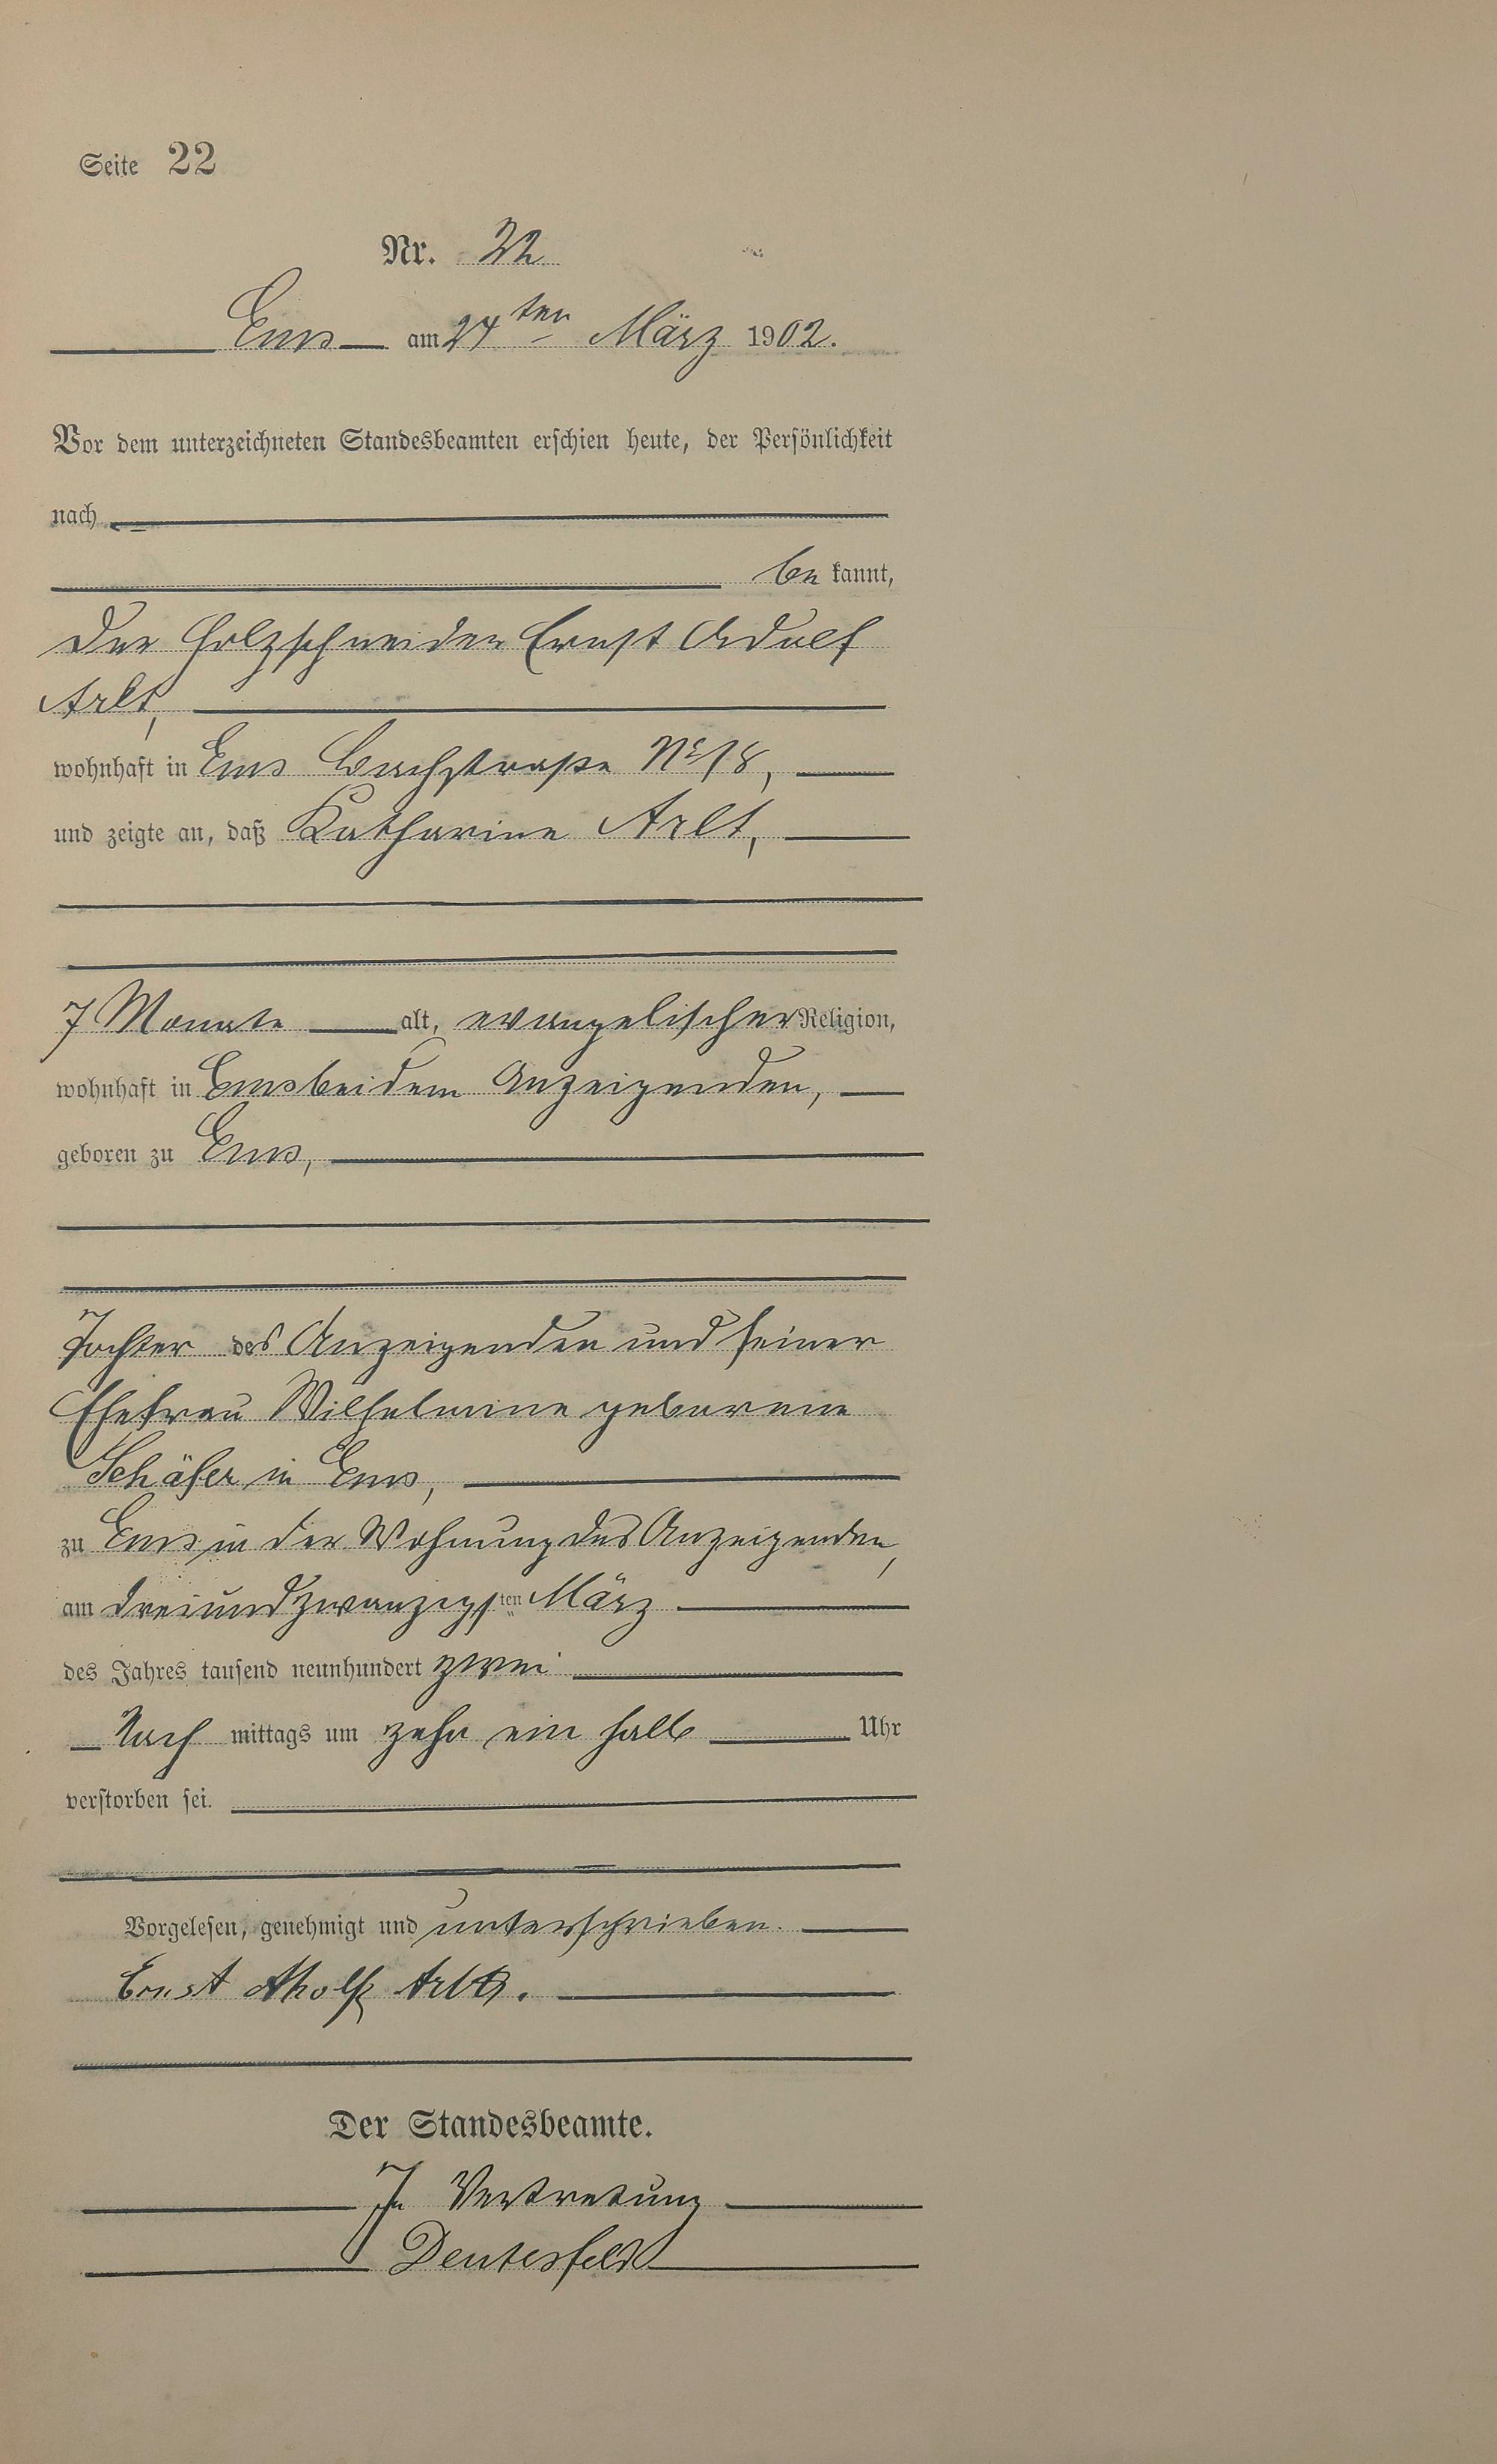 Seite 22
Nr. 22
Ems am 24ten März 1902.
Vor dem unterzeichneten Standesbeamten erschien heute, der Persönlichkeit
nach
be kannt,
der Holzschneider Ernst Adolf
Arlt,
wohnhaft in Ems Bachstraße No 18,
und zeigte an, daß Katharine Arlt,
7 Monate alt, evangelischer Religion,
wohnhaft in Ems bei dem Anzeigenden,
geboren zu Ems,
Tochter des Anzeigenden und seiner
Ehefrau Wilhelmine geborene
Schäfer in Ems,
zu Ems in der Wohnung des Anzeigenden,
am dreiundzwanzigsten März
des Jahres tausend neunhundert zwei
Nach mittags um zehn ein halb Uhr
verstorben sei.
Vorgelesen, genehmigt und unterschrieben.
Ernst Adolf Arlt.
Der Standesbeamte.
In Vertretung
Deutesfeld